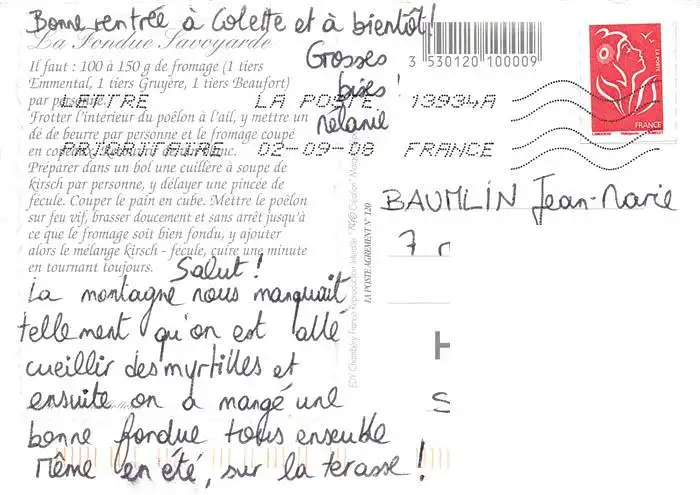 Bonne rentrée à Colette et à bientôt!
La Fondue Savoyarde
Il faut : 100 à 150 g de fromage (1 tiers
Emmental, 1 tiers Gruyère, 1 tiers Beaufort)
par personne.
Frotter l'intérieur du poêlon à l'ail, y mettre un
dé de beurre par personne et le fromage coupé
en
Préparer dans un bol une cuillère à soupe de
kirsch par personne, y délayer une pincée de
fécule. Couper le pain en cube. Mettre le poêlon
sur feu vif, brasser doucement et sans arrêt jusqu'à
ce que le fromage soit bien fondu, y ajouter
alors le mélange kirsch - fécule, cuire une minute
en tournant toujours.
Grosses
bises!
Mélanie
3 530120 100009
LETTRE LA POSTE 13934A
PRIORITAIRE 02-09-08 FRANCE
LA POSTE
FRANCE
Salut!
La montagne nous manquait
tellement qu'on est allé
cueillir des myrtilles et
ensuite on a mangé une
bonne fondue tous ensemble
même en été, sur la terasse!
EDY Chambéry France Reproduction Interdite
LA POSTE AGREMENT N° 120
BAUMLIN Jean-Marie
7 r
H
S